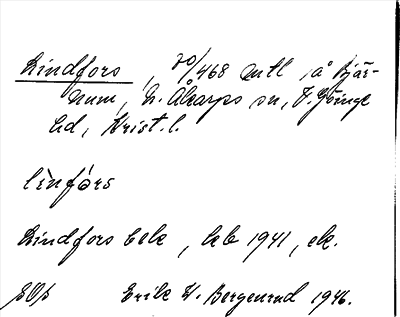 Lindfors, 70/468 mtl, å Bjär-
num, N. Åkarps sn, V. Göinge
hd, Krist. l.
lìnfórs
Lindfors bek, kb 1941, ek.
Erik W. Bergenrud 1946.